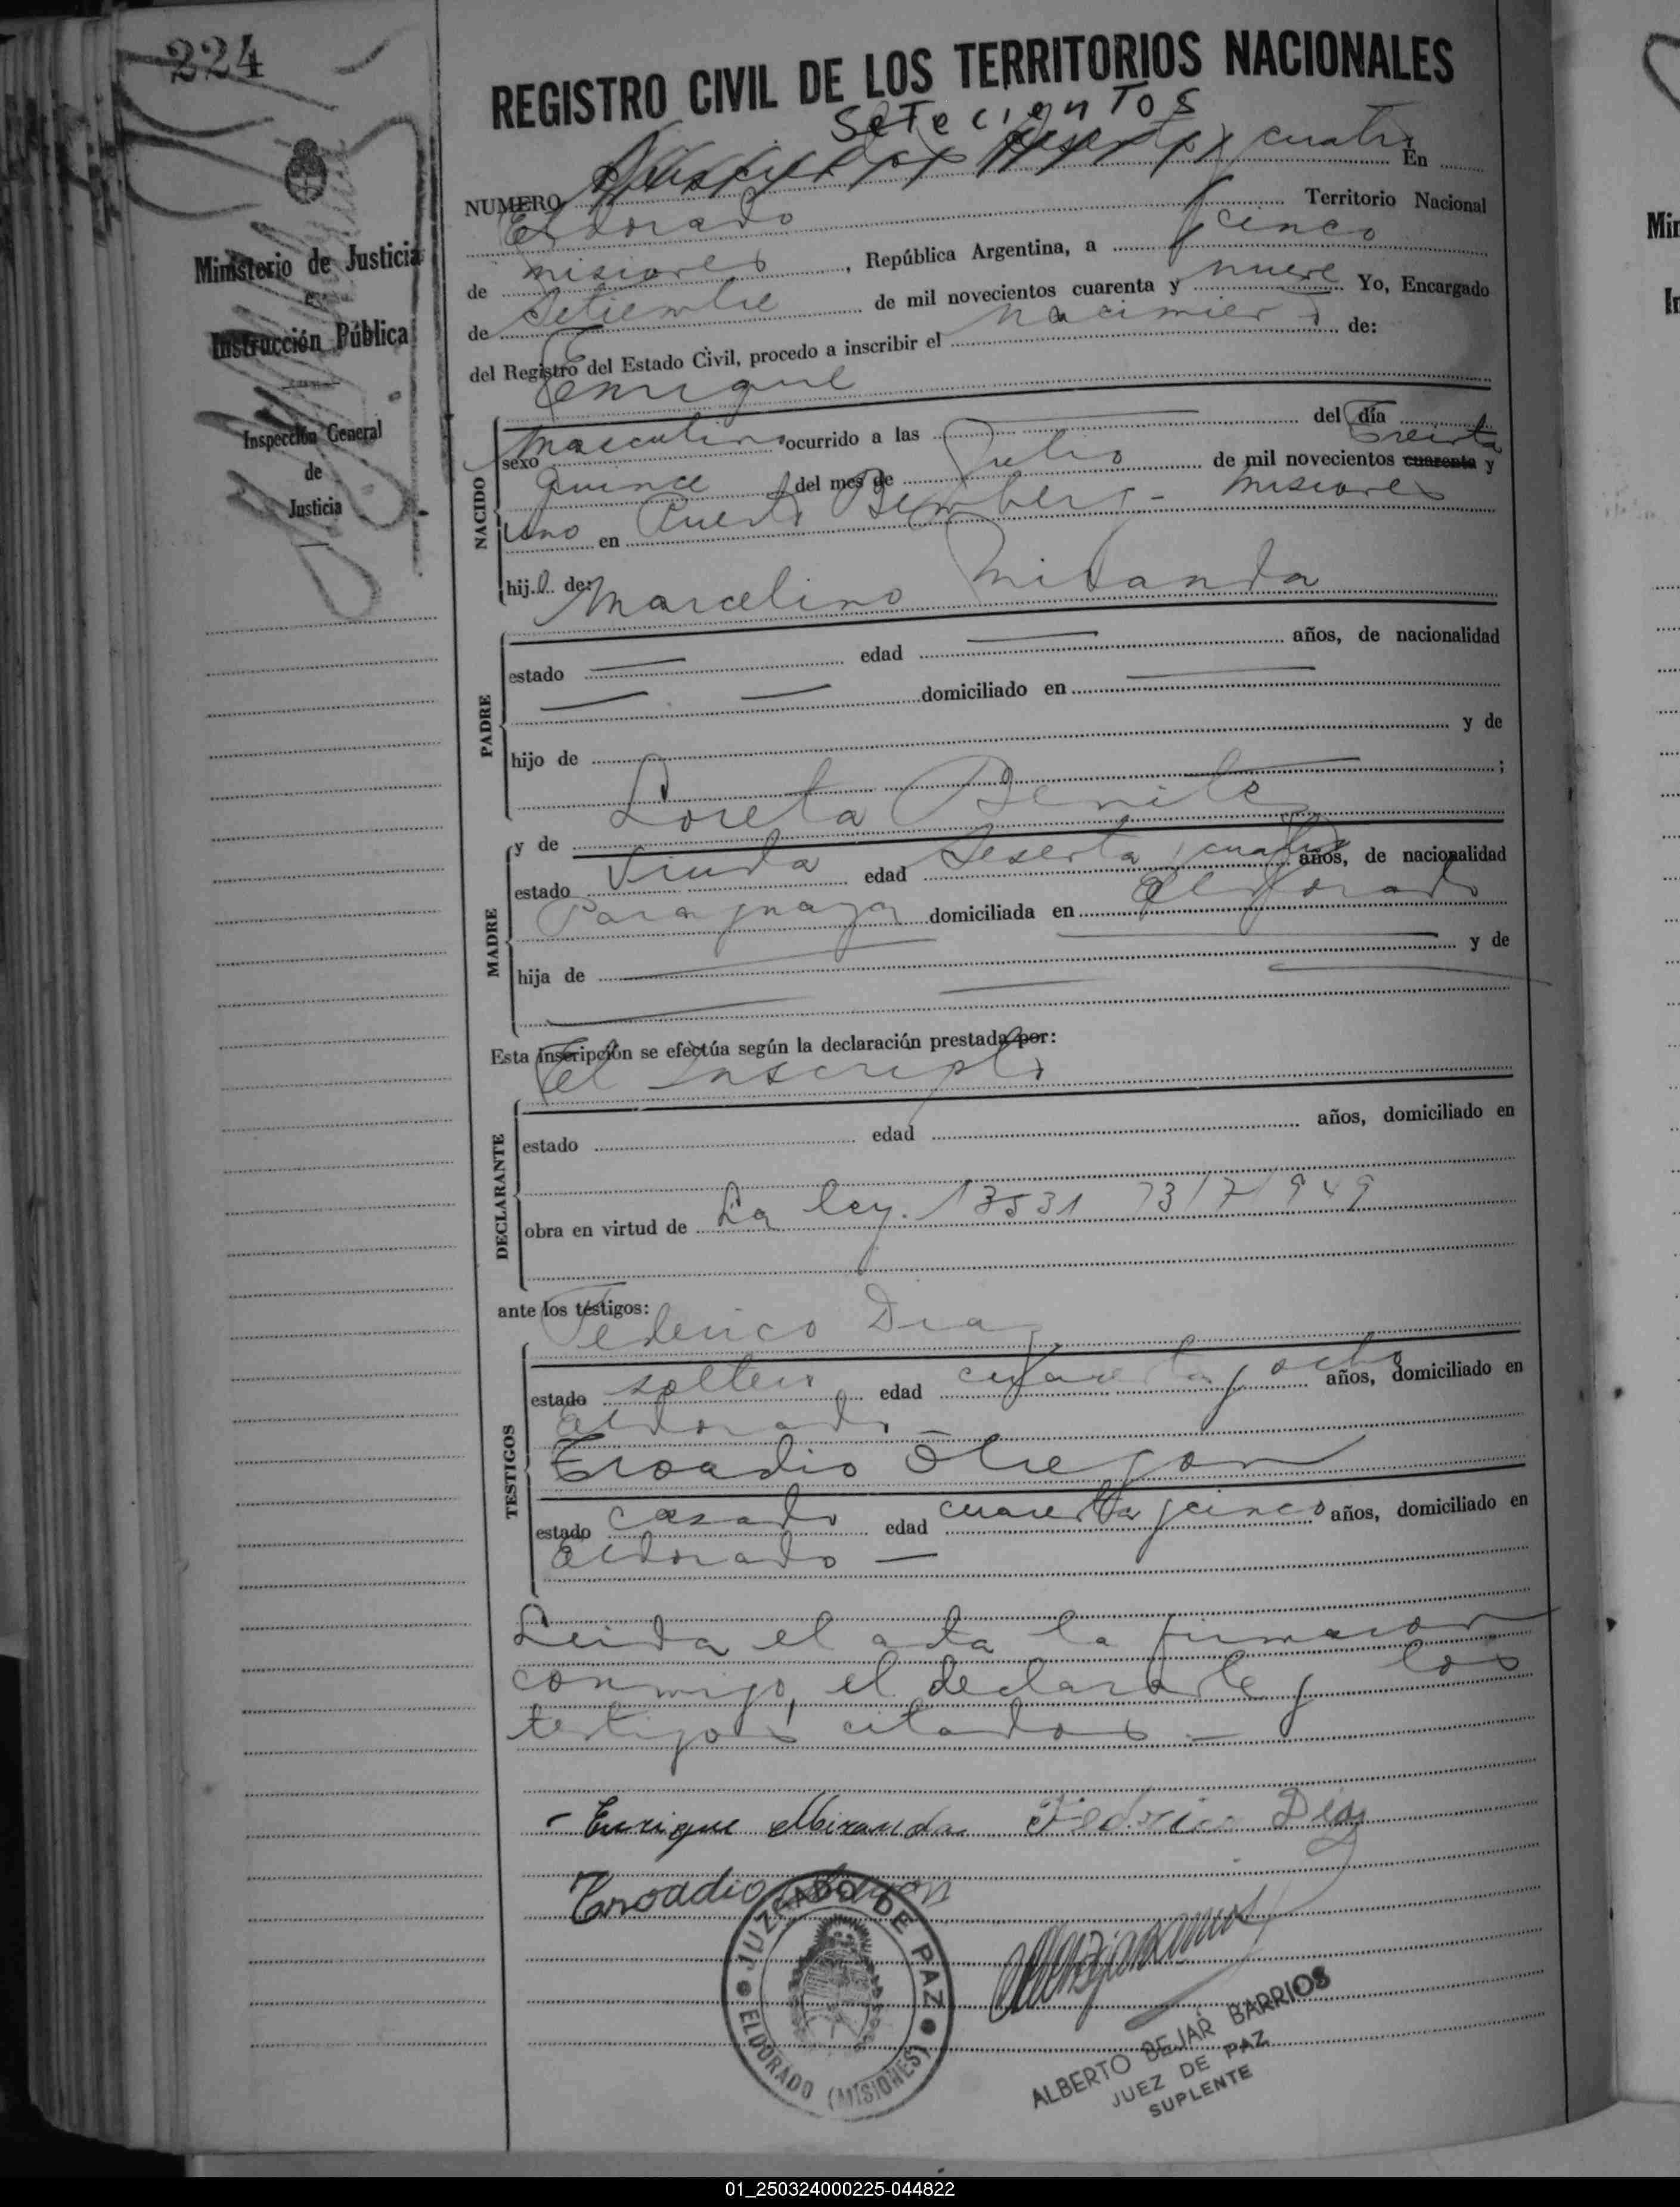 224
REGISTRO CIVIL DE LOS TERRITORIOS NACIONALES
SeTecienTOS
NUMERO cuatro En
Eldorado Territorio Nacional
de misiones, República Argentina, a cinco
de Setiembre de mil novecientos cuarenta y nueve Yo, Encargado
del Registro del Estado Civil, procedo a inscribir el nacimiento de:
Enrique
Ministerio de Justicia
e
Instrucción Pública
Inspección General
de
Justicia
NACIDO
sexo masculino ocurrido a las del día
quince del mes de Julio de mil novecientos cuarenta y treinta
uno en Puerto Bemberg - misiones
hijo de: Marcelino Miranda
PADRE
estado edad años, de nacionalidad
domiciliado en
hijo de y de
;
y de Loreta Benitez
MADRE
estado Viuda edad sesenta y cuatro años, de nacionalidad
Paraguaya domiciliada en Eldorado
hija de y de
Esta inscripción se efectúa según la declaración prestada por:
El inscripto
DECLARANTE
estado edad años, domiciliado en
obra en virtud de La ley. 13531 949
ante los testigos:
Federico Diaz
TESTIGOS
estado soltero edad cuarenta y ocho años, domiciliado en
Eldorado
Eroadio Obregon
estado casado edad cuarenta y cinco años, domiciliado en
Eldorado —
Leida el acta la firmaron
conmigo, el declarante y los
testigos citados —
- Enrique Miranda Federico Diaz
Eroadio
JUZGADO DE PAZ
ELDORADO (MISIONES)
ALBERTO BEJAR BARRIOS
JUEZ DE PAZ
SUPLENTE
Min
In
01_250324000225-044822